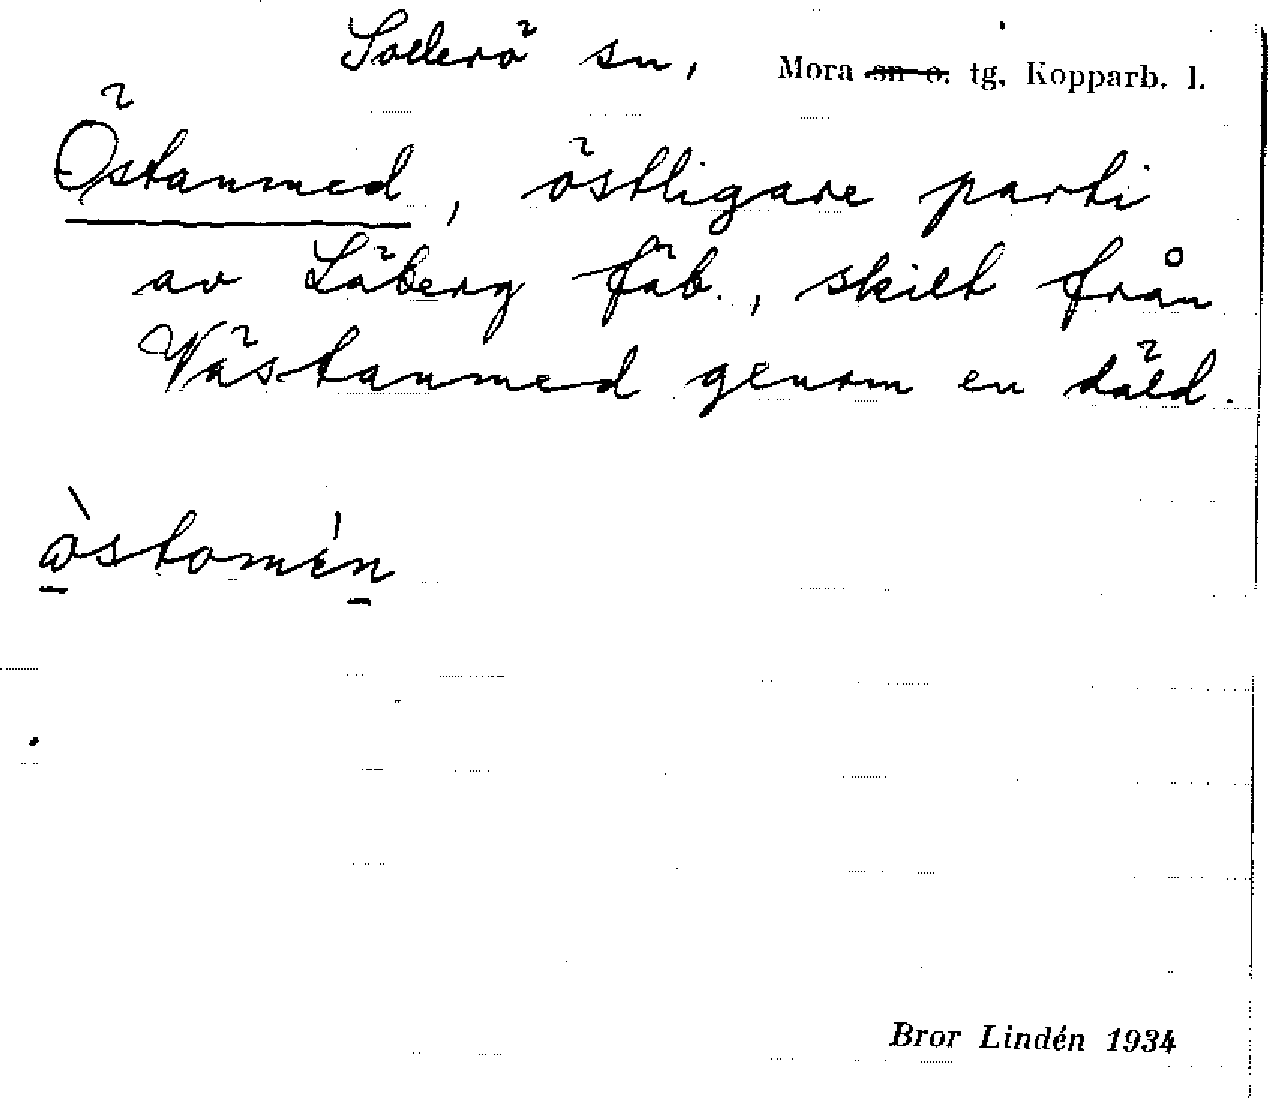 Sollerö sn, Mora sn o. tg, Kopparb. l.
Östanmed, östligare parti
av Läberg fäb., skilt från
Västanmed genom en däld.
Bror Lindén 1934